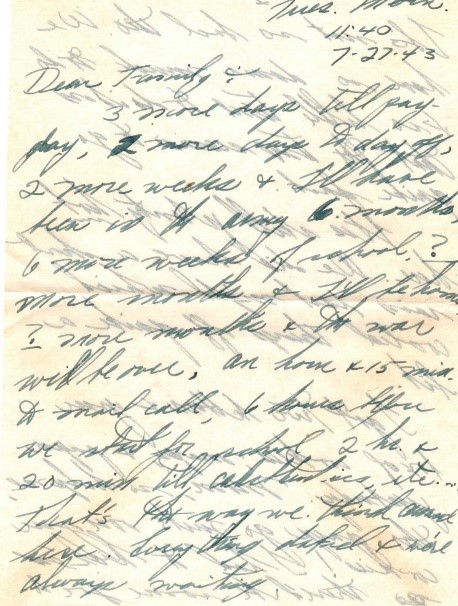 Tues. Morn.
11:40
7-27-43
Dear Family:
3 more days till pay-
day, 2 more days to day off,
2 more weeks & I'll have
been in the army 6 months,
6 more weeks of school, ?
more months & I'll be home
? more months & the war
will be over, an hour & 15 min.
to mail call, 6 hours before
we start for school, 2 hr. &
20 min till calisthenics, etc...
That's the way we think around
here. Everything dated & we're
always waiting.